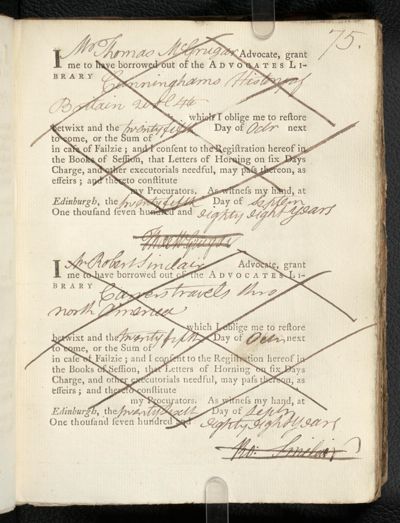 75.
I Mr Thomas McGrugar Advocate, grant
me to have borrowed out of the ADVOCATES LI-
BRARY Cunninghams History of
Britain 2 vol 4to
which I oblige me to restore
betwixt and the twenty fifth Day of Octr next
to come, or the Sum of
in case of Failzie; and I consent to the Registration hereof in
the Books of Session, that Letters of Horning on six Days
Charge, and other executorials needful, may pass thereon, as
effeirs; and thereto constitute
my Procurators. As witness my hand, at
Edinburgh, the twenty fifth Day of Septem
One thousand seven hundred and eighty eight years
Tho McGrugar
I Mr Robert Sinclair Advocate, grant
me to have borrowed out of the ADVOCATES LI-
BRARY Carvers travels thro
north America
which I oblige me to restore
betwixt and the twenty fifth Day of Octr next
to come, or the Sum of
in case of Failzie; and I consent to the Registration hereof in
the Books of Session, that Letters of Horning on six Days
Charge, and other executorials needful, may pass thereon, as
effeirs; and thereto constitute
my Procurators. As witness my hand, at
Edinburgh, the Day of Septr
One thousand seven hundred and eighty eight years
Ro: Sinclair